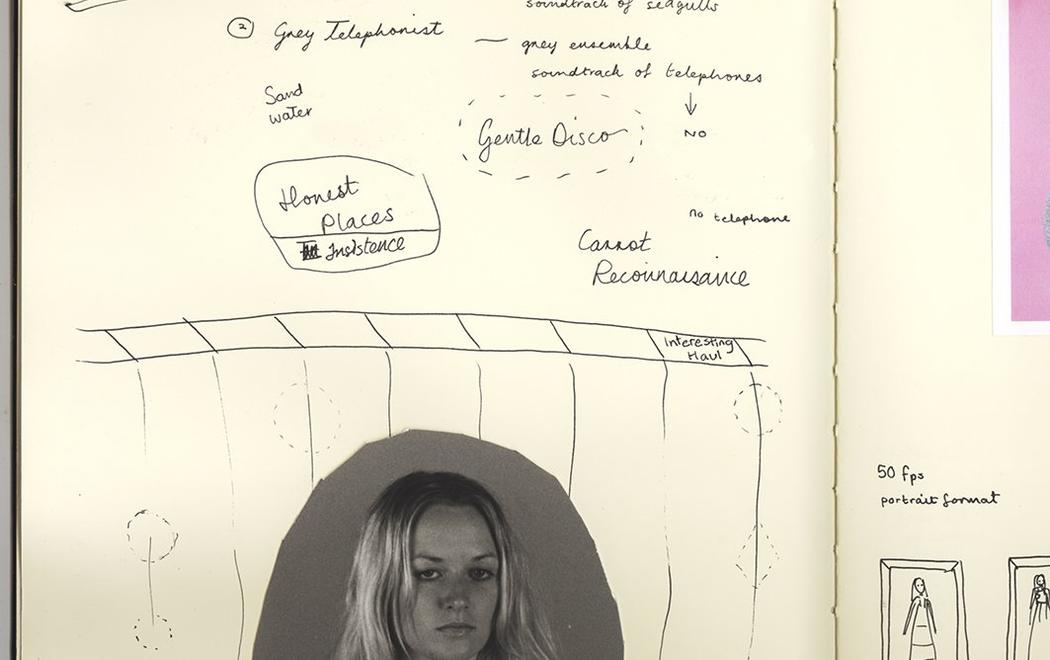 soundtrack of seagulls
② Grey Telephonist — grey ensemble
soundtrack of telephones
↓
NO
Sand
water
Gentle Disco
Honest
Places
Insistence
no telephone
Carrot
Reconnaisance
Interesting
Haul
50 fps
portrait format